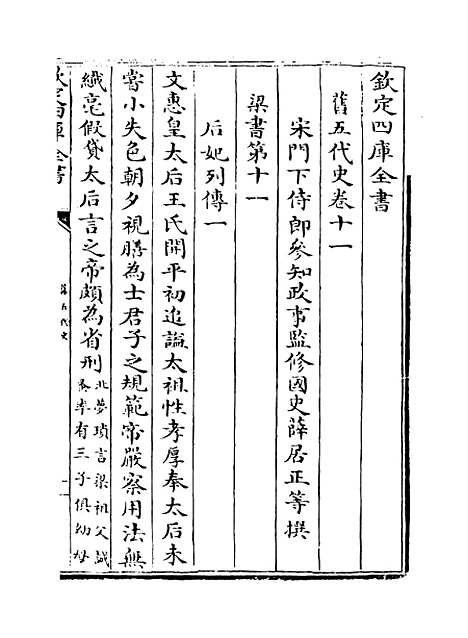 欽定四庫全書
舊五代史卷十一
宋門下侍郎參知政事監修國史薛居正等撰
梁書第十一
后妃列傳一
文惠皇太后王氏開平初追謚太祖性孝厚奉太后未
嘗小失色朝夕視膳為士君子之規範帝嚴察用法無
纖毫假貸太后言之帝頗為省刑北夢瑣言梁祖父誠
蚤卒有三子俱幼母
欽定四庫全書
舊五代史